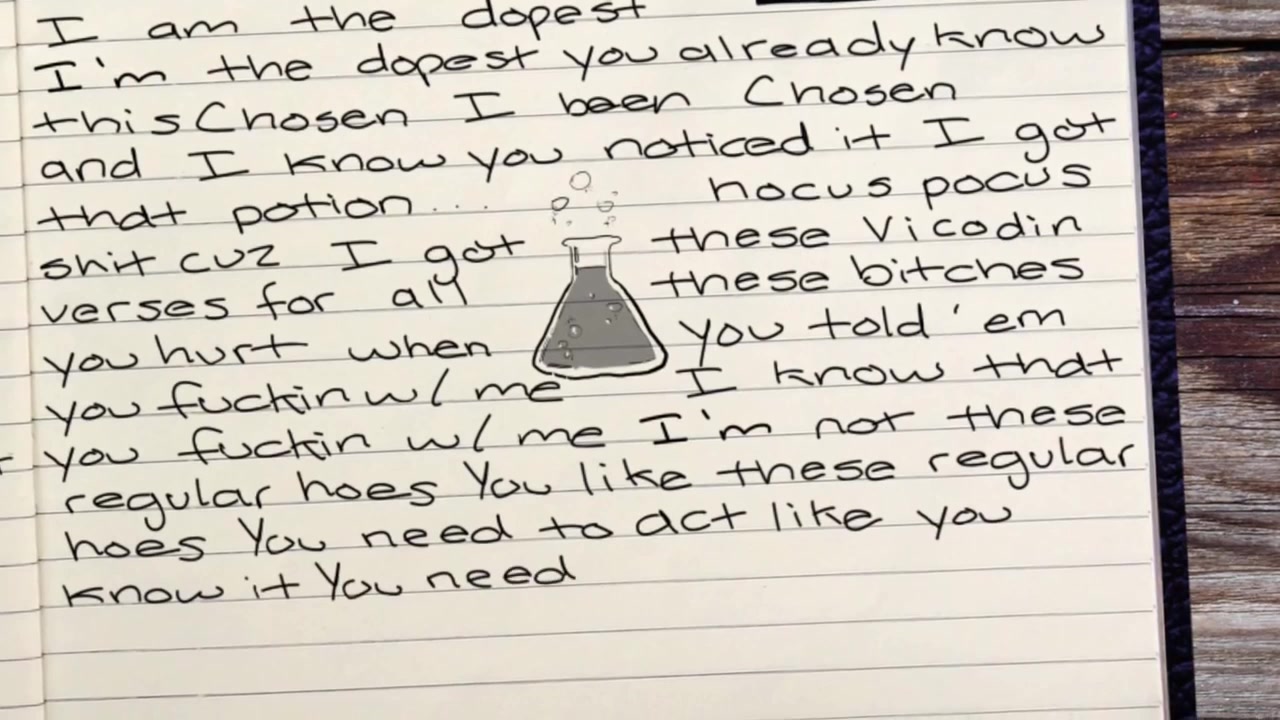 I am the dopest
I'm the dopest you already know
this Chosen I been Chosen
and I know you noticed it I got
that potion.... hocus pocus
shit cuz I got these Vicodin
verses for all these bitches
you hurt when you told 'em
you fuckin w/ me I know that
you fuckin w/ me I'm not these
regular hoes You like these regular
hoes You need to act like you
know it You need